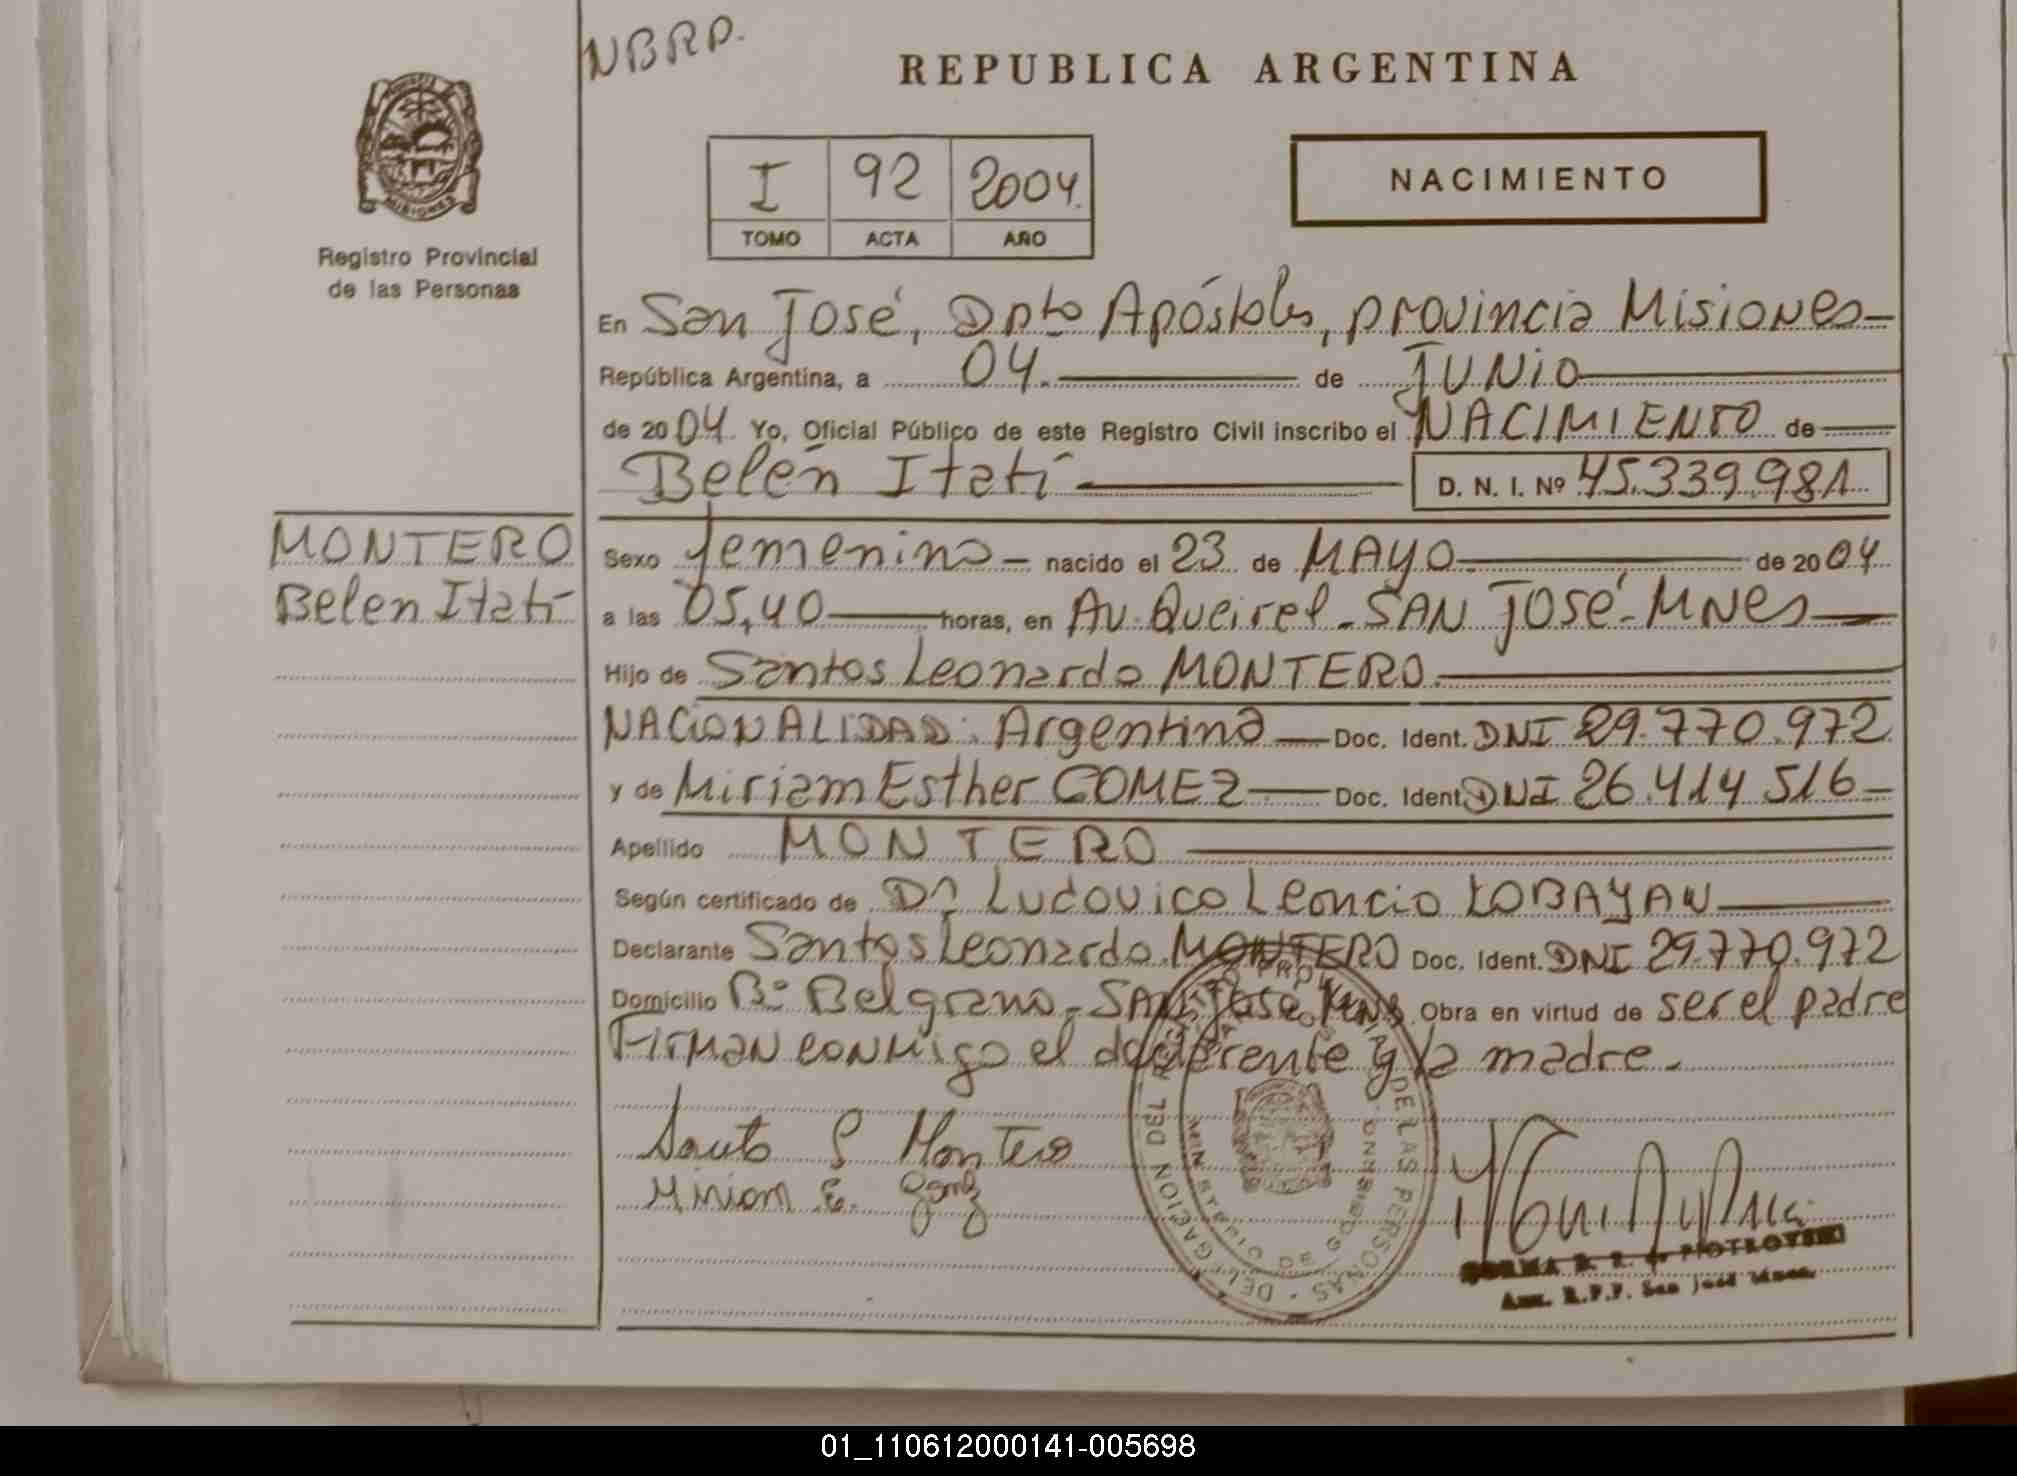 NBRP.
REPUBLICA ARGENTINA
MISIONES
Registro Provincial
de las Personas
I 92 2004.
TOMO ACTA AÑO
NACIMIENTO
En San José, Dpto Apóstoles, provincia Misiones
República Argentina, a 04. de JUNIO
de 2004 Yo, Oficial Público de este Registro Civil inscribo el NACIMIENTO de
Belén Itatí D. N. I. Nº 45.339.981
MONTERO
Belen Itatí
Sexo femenino - nacido el 23 de MAYO de 2004
a las 05,40 horas, en Av. Queirel - SAN JOSÉ - MNES
Hijo de Santos Leonardo MONTERO
NACIONALIDAD: Argentina Doc. Ident. DNI 29.770.972
y de Miriam Esther GOMEZ Doc. Ident. DNI 26.414 516
Apellido MONTERO
Según certificado de Dr. Ludovico Leoncio LOBAYAN
Declarante Santos Leonardo MONTERO Doc. Ident. DNI 29.770.972
Domicilio Bº Belgrano - SAN José Mns Obra en virtud de ser el padre
Firman conmigo el y la madre.
Santo L Montero
Miriam E. Gomez
DELEGACION DEL REGISTRO PROVINCIAL DE LAS PERSONAS
MINISTERIO DE GOBIERNO
NORMA B. R. de PIOTROVSKI
Aux. R.P.P. San José Mnes.
01_110612000141-005698